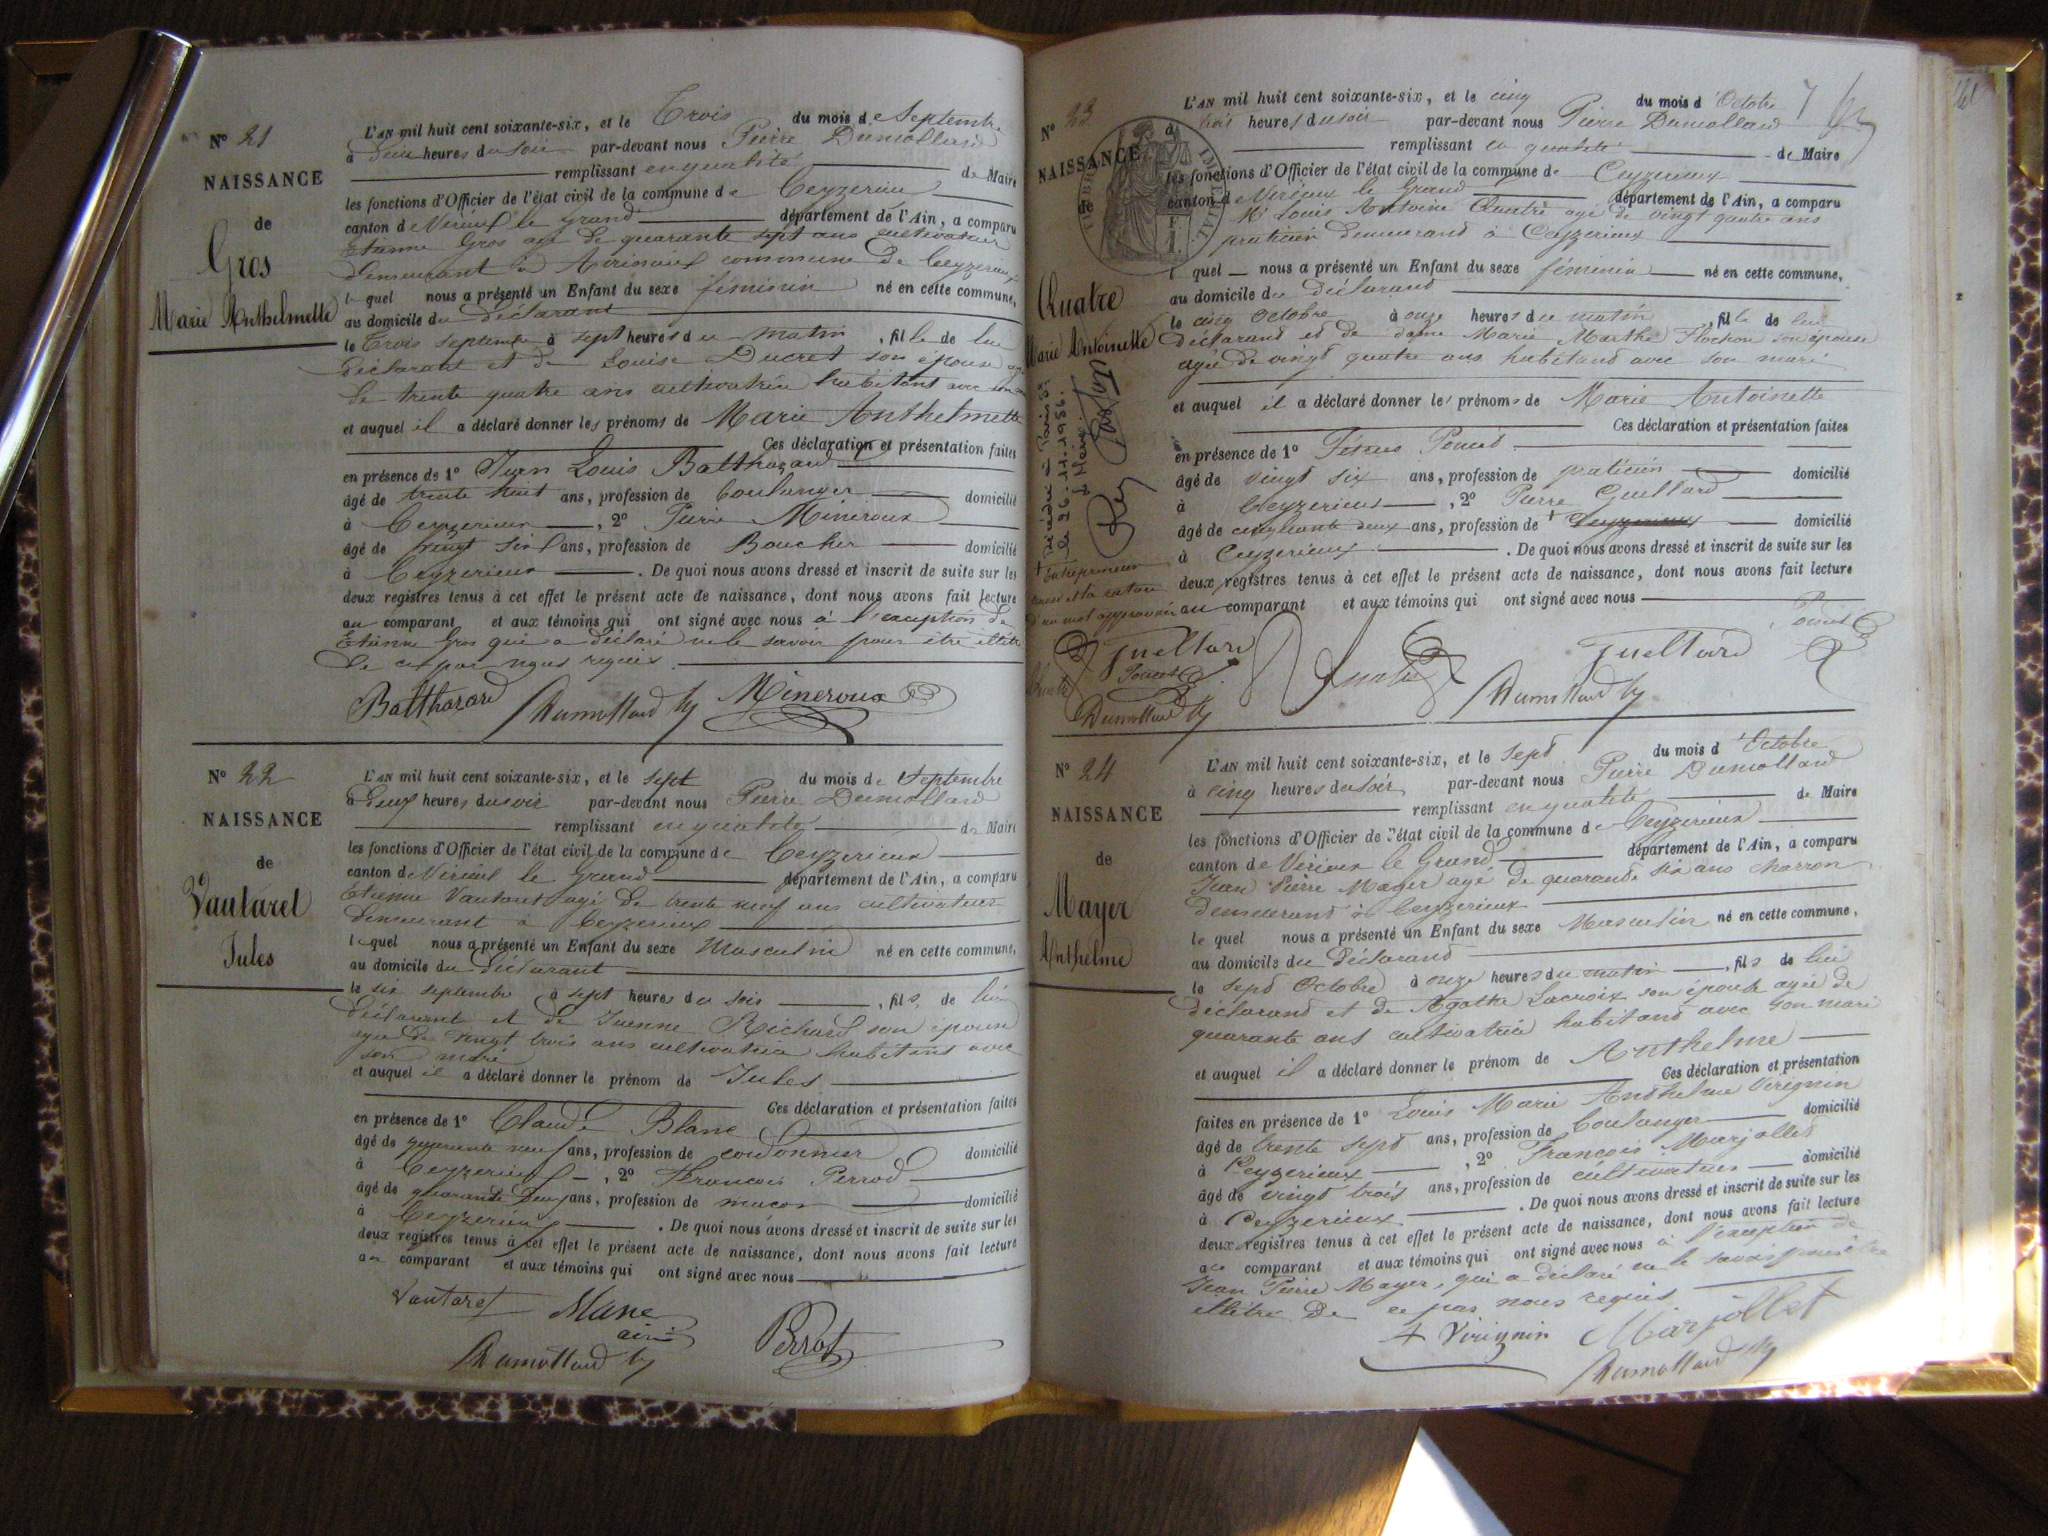 N° 21
NAISSANCE
de
Gros
Marie Anthelmette
L'AN mil huit cent soixante-six, et le Trois du mois de Septembre
à heures du soir par-devant nous Pierre Dumollard
remplissant en qualité de Maire
les fonctions d'Officier de l'état civil de la commune de Ceyzerieu
canton de Virieu le Grand département de l'Ain, a comparu
Etienne Gros agé de quarante sept ans cultivateur
demeurant à commune de Ceyzerieux
lequel nous a présenté un Enfant du sexe féminin né en cette commune,
au domicile du déclarant
le Trois septembre à sept heures du matin, fille de lui
déclarant et de Louise Ducret son épouse
de trente quatre ans cultivatrice habitant avec
et auquel il a déclaré donner les prénoms de Marie Anthelmette
Ces déclaration et présentation faites
en présence de 1° Jean Louis Balthazard
âgé de trente huit ans, profession de boulanger domicilié
à Ceyzerieux, 2° Pierre Mineroux
âgé de vingt six ans, profession de Boucher domicilié
à Ceyzerieux. De quoi nous avons dressé et inscrit de suite sur les
deux registres tenus à cet effet le présent acte de naissance, dont nous avons fait lecture
au comparant et aux témoins qui ont signé avec nous à l'exception de
Etienne Gros qui a déclaré ne le savoir pour être illitré
de ce par nous requis.
Balthazard Dumollard Mineroux
N° 22
NAISSANCE
de
Vautaret
Jules
L'AN mil huit cent soixante-six, et le sept du mois de Septembre
à heures du soir par-devant nous Pierre Dumollard
remplissant en qualité de Maire
les fonctions d'Officier de l'état civil de la commune de Ceyzerieux
canton de Virieu le Grand département de l'Ain, a comparu
Etienne Vautaret agé de trente neuf ans cultivateur
demeurant à Ceyzerieux
lequel nous a présenté un Enfant du sexe Masculin né en cette commune,
au domicile du déclarant
le six septembre à sept heures du soir, fils de lui
déclarant et de Jeanne Richard son épouse
agée de vingt trois ans cultivatrice habitant avec
son mari
et auquel il a déclaré donner le prénom de Jules
Ces déclaration et présentation faites
en présence de 1° Claude Blanc
âgé de quarante neuf ans, profession de cordonnier domicilié
à Ceyzerieux, 2° François Perrod
âgé de quarante deux ans, profession de maçon domicilié
à Ceyzerieux. De quoi nous avons dressé et inscrit de suite sur les
deux registres tenus à cet effet le présent acte de naissance, dont nous avons fait lecture
au comparant et aux témoins qui ont signé avec nous
Vautaret
Dumollard Perrot
N° 23
NAISSANCE
de
Quatre
Marie Antoinette
Décédée à Paris
le 26.11.1936.
+ Entrepreneur
L'AN mil huit cent soixante-six, et le cinq du mois d'Octobre
à trois heures du soir par-devant nous Pierre Dumollard
remplissant en qualité de Maire
les fonctions d'Officier de l'état civil de la commune de Ceyzerieux
canton de Virieux le Grand département de l'Ain, a comparu
Mr Louis Antoine Quatre agé de vingt quatre ans
praticien demeurand à Ceyzerieux
lequel nous a présenté un Enfant du sexe féminin né en cette commune,
au domicile du déclarand
le cinq Octobre à onze heures du matin, fille de lui
déclarand et de dame Marie Marthe Flochon son épouse
agée de vingt quatre ans habitand avec son mari
et auquel il a déclaré donner les prénoms de Marie Antoinette
Ces déclaration et présentation faites
en présence de 1° Poncet
âgé de vingt six ans, profession de praticien domicilié
à Ceyzerieux, 2° Pierre Guettard
âgé de cinquante deux ans, profession de + domicilié
à Ceyzerieux. De quoi nous avons dressé et inscrit de suite sur les
deux registres tenus à cet effet le présent acte de naissance, dont nous avons fait lecture
au comparant et aux témoins qui ont signé avec nous
Poncet
Guettard Quatre Guettard
Poncet Dumollard
Dumollard
N° 24
NAISSANCE
de
Mayer
Anthelme
L'AN mil huit cent soixante-six, et le sept du mois d'Octobre
à cinq heures du soir par-devant nous Pierre Dumollard
remplissant en qualité de Maire
les fonctions d'Officier de l'état civil de la commune de Ceyzerieux
canton de Virieux le Grand département de l'Ain, a comparu
Jean Pierre Mayer agé de quarande six ans charron
demeurand à Ceyzerieux
lequel nous a présenté un Enfant du sexe Masculin né en cette commune,
au domicile du déclarand
le sept Octobre à onze heures du matin, fils de lui
déclarand et de Agathe Lacroix son épouse agée de
quarante ans cultivatrice habitand avec son mari
et auquel il a déclaré donner le prénom de Anthelme
Ces déclaration et présentation
faites en présence de 1° Louis Marie Anthelme Virignin
âgé de trente sept ans, profession de boulanger domicilié
à Ceyzerieux, 2° François Marjollet
âgé de vingt trois ans, profession de cultivateur domicilié
à Ceyzerieux. De quoi nous avons dressé et inscrit de suite sur les
deux registres tenus à cet effet le présent acte de naissance, dont nous avons fait lecture
au comparant et aux témoins qui ont signé avec nous à l'exception de
Jean Pierre Mayer, qui a déclaré ne le savoir pour être
illitré de ce par nous requis
Virignin Marjollet
Dumollard